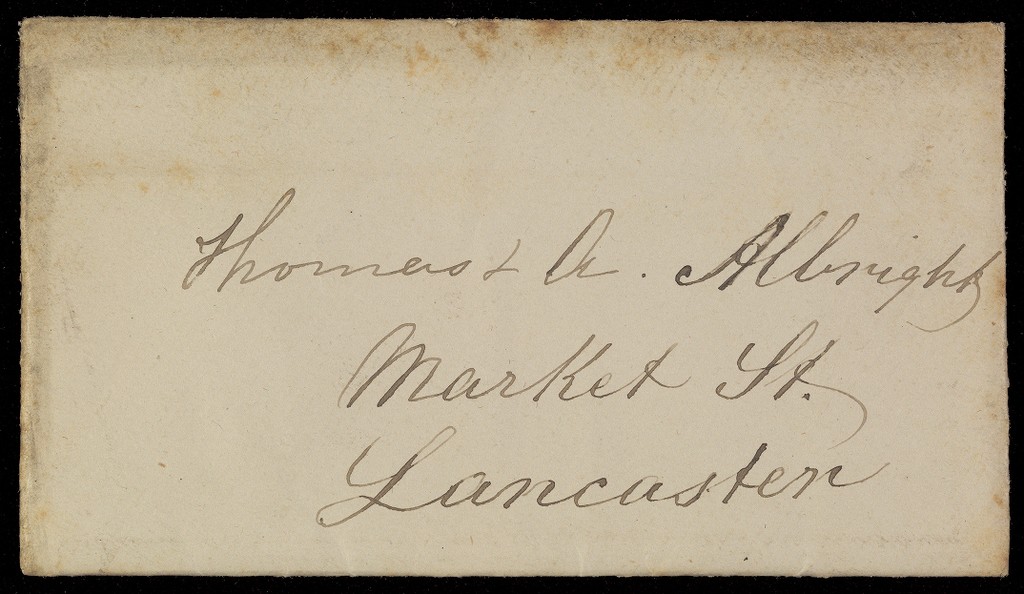 Thomas & A. Albright
Market St.
Lancaster